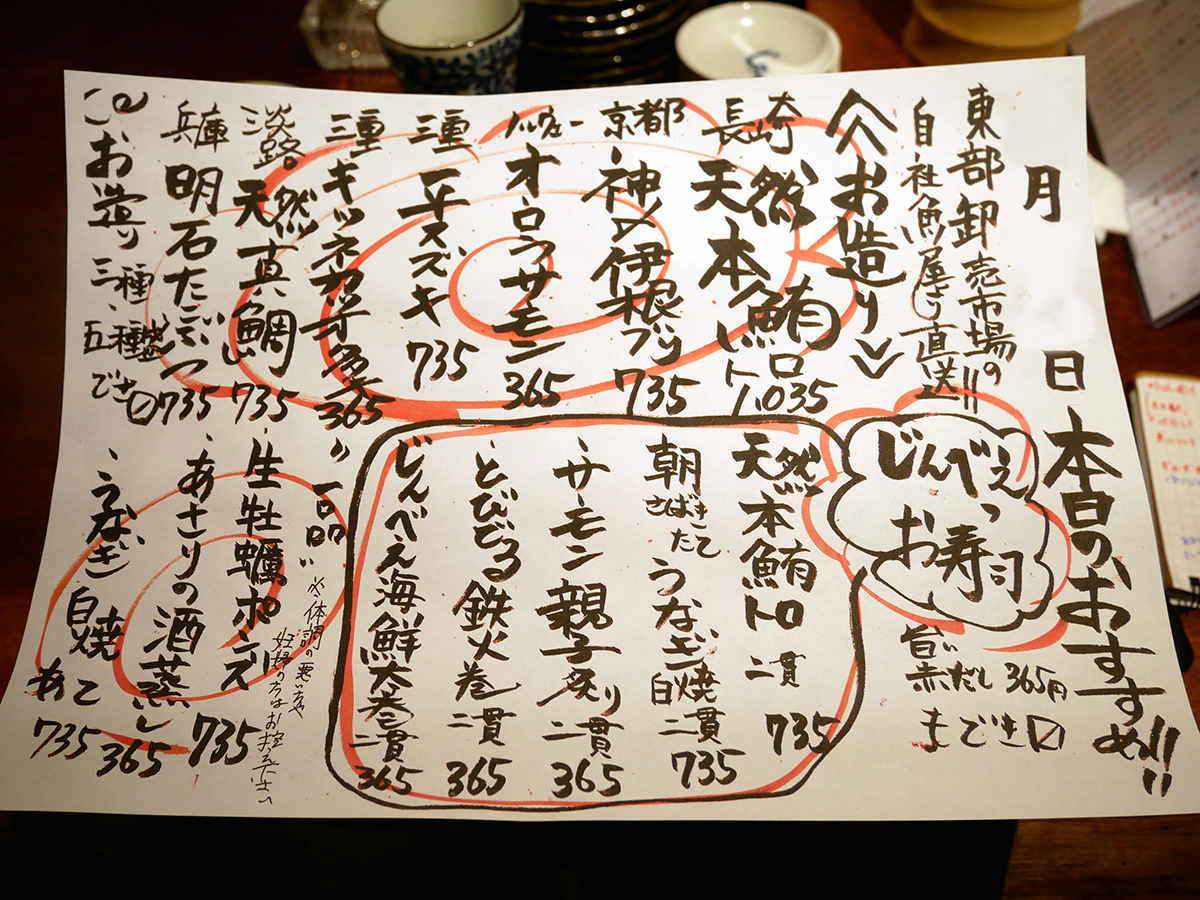 月　日 本日のおすすめ!!
東部卸売市場の
自社魚屋より直送!!
お造り
長崎 天然本鮪トロ 1035
京都 神の伊根ブリ 735
ノルウェー オーロラサーモン 365
三重 平スズキ 735
三重 キツネカツオ 365
淡路 天然真鯛 735
兵庫 明石だこぶつ 735
お造り 三種 五種盛 でき〼
じんべえっ
お寿司
旨い
赤だし 365円
もでき〼
天然本鮪トロ 二貫 735
朝さばきたて うなぎ白焼 二貫 735
サーモン親子炙り 二貫 365
とびどろ鉄火巻 二貫 365
じんべえ海鮮太巻 二貫 365
一品
※体調の悪い方や
妊婦の方はお控え下さい
生牡蠣ポンズ 735
あさりの酒蒸し 365
うなぎ白焼 あて 735